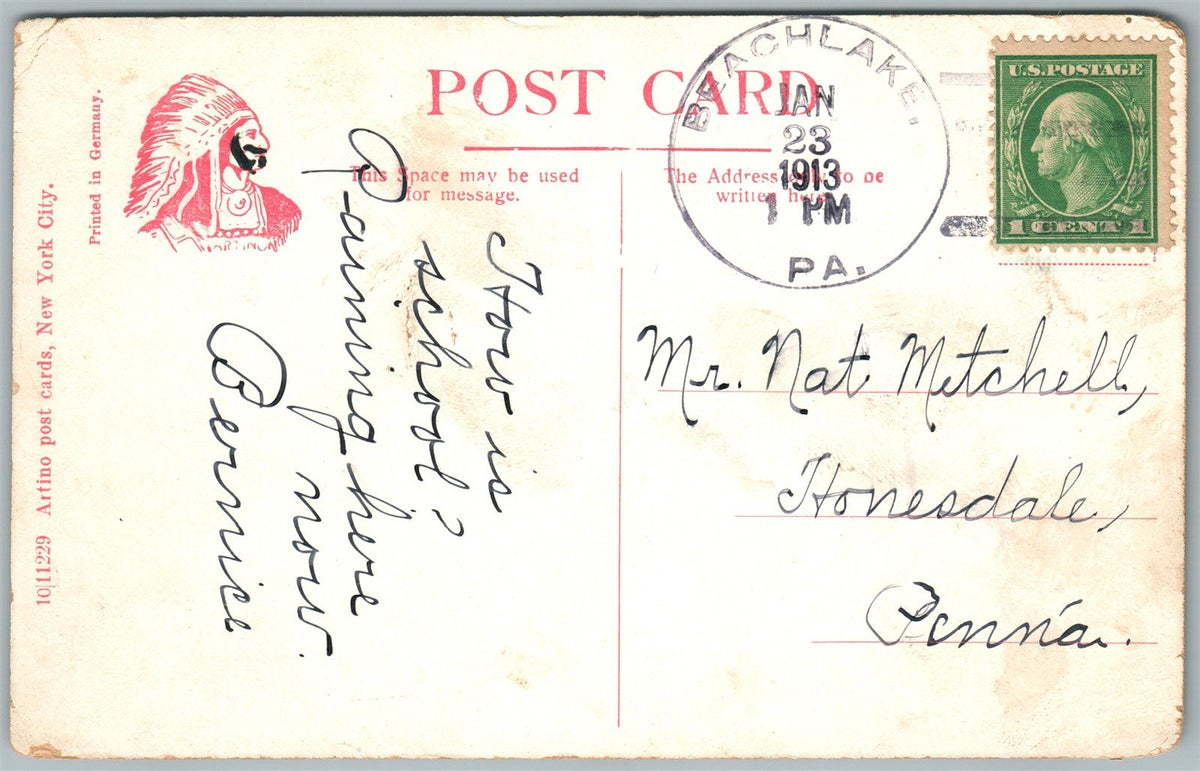 POST CARD
This Space may be used
for message.
The Address only to be
written here
BEACHLAKE,
JAN
23
1913
1 PM
PA.
U.S. POSTAGE
1 CENT 1
Printed in Germany.
10|11229 Artino post cards, New York City.
How is
school?
Raining here
now.
Bernice
Mr. Nat Mitchell,
Honesdale,
Penn'a.